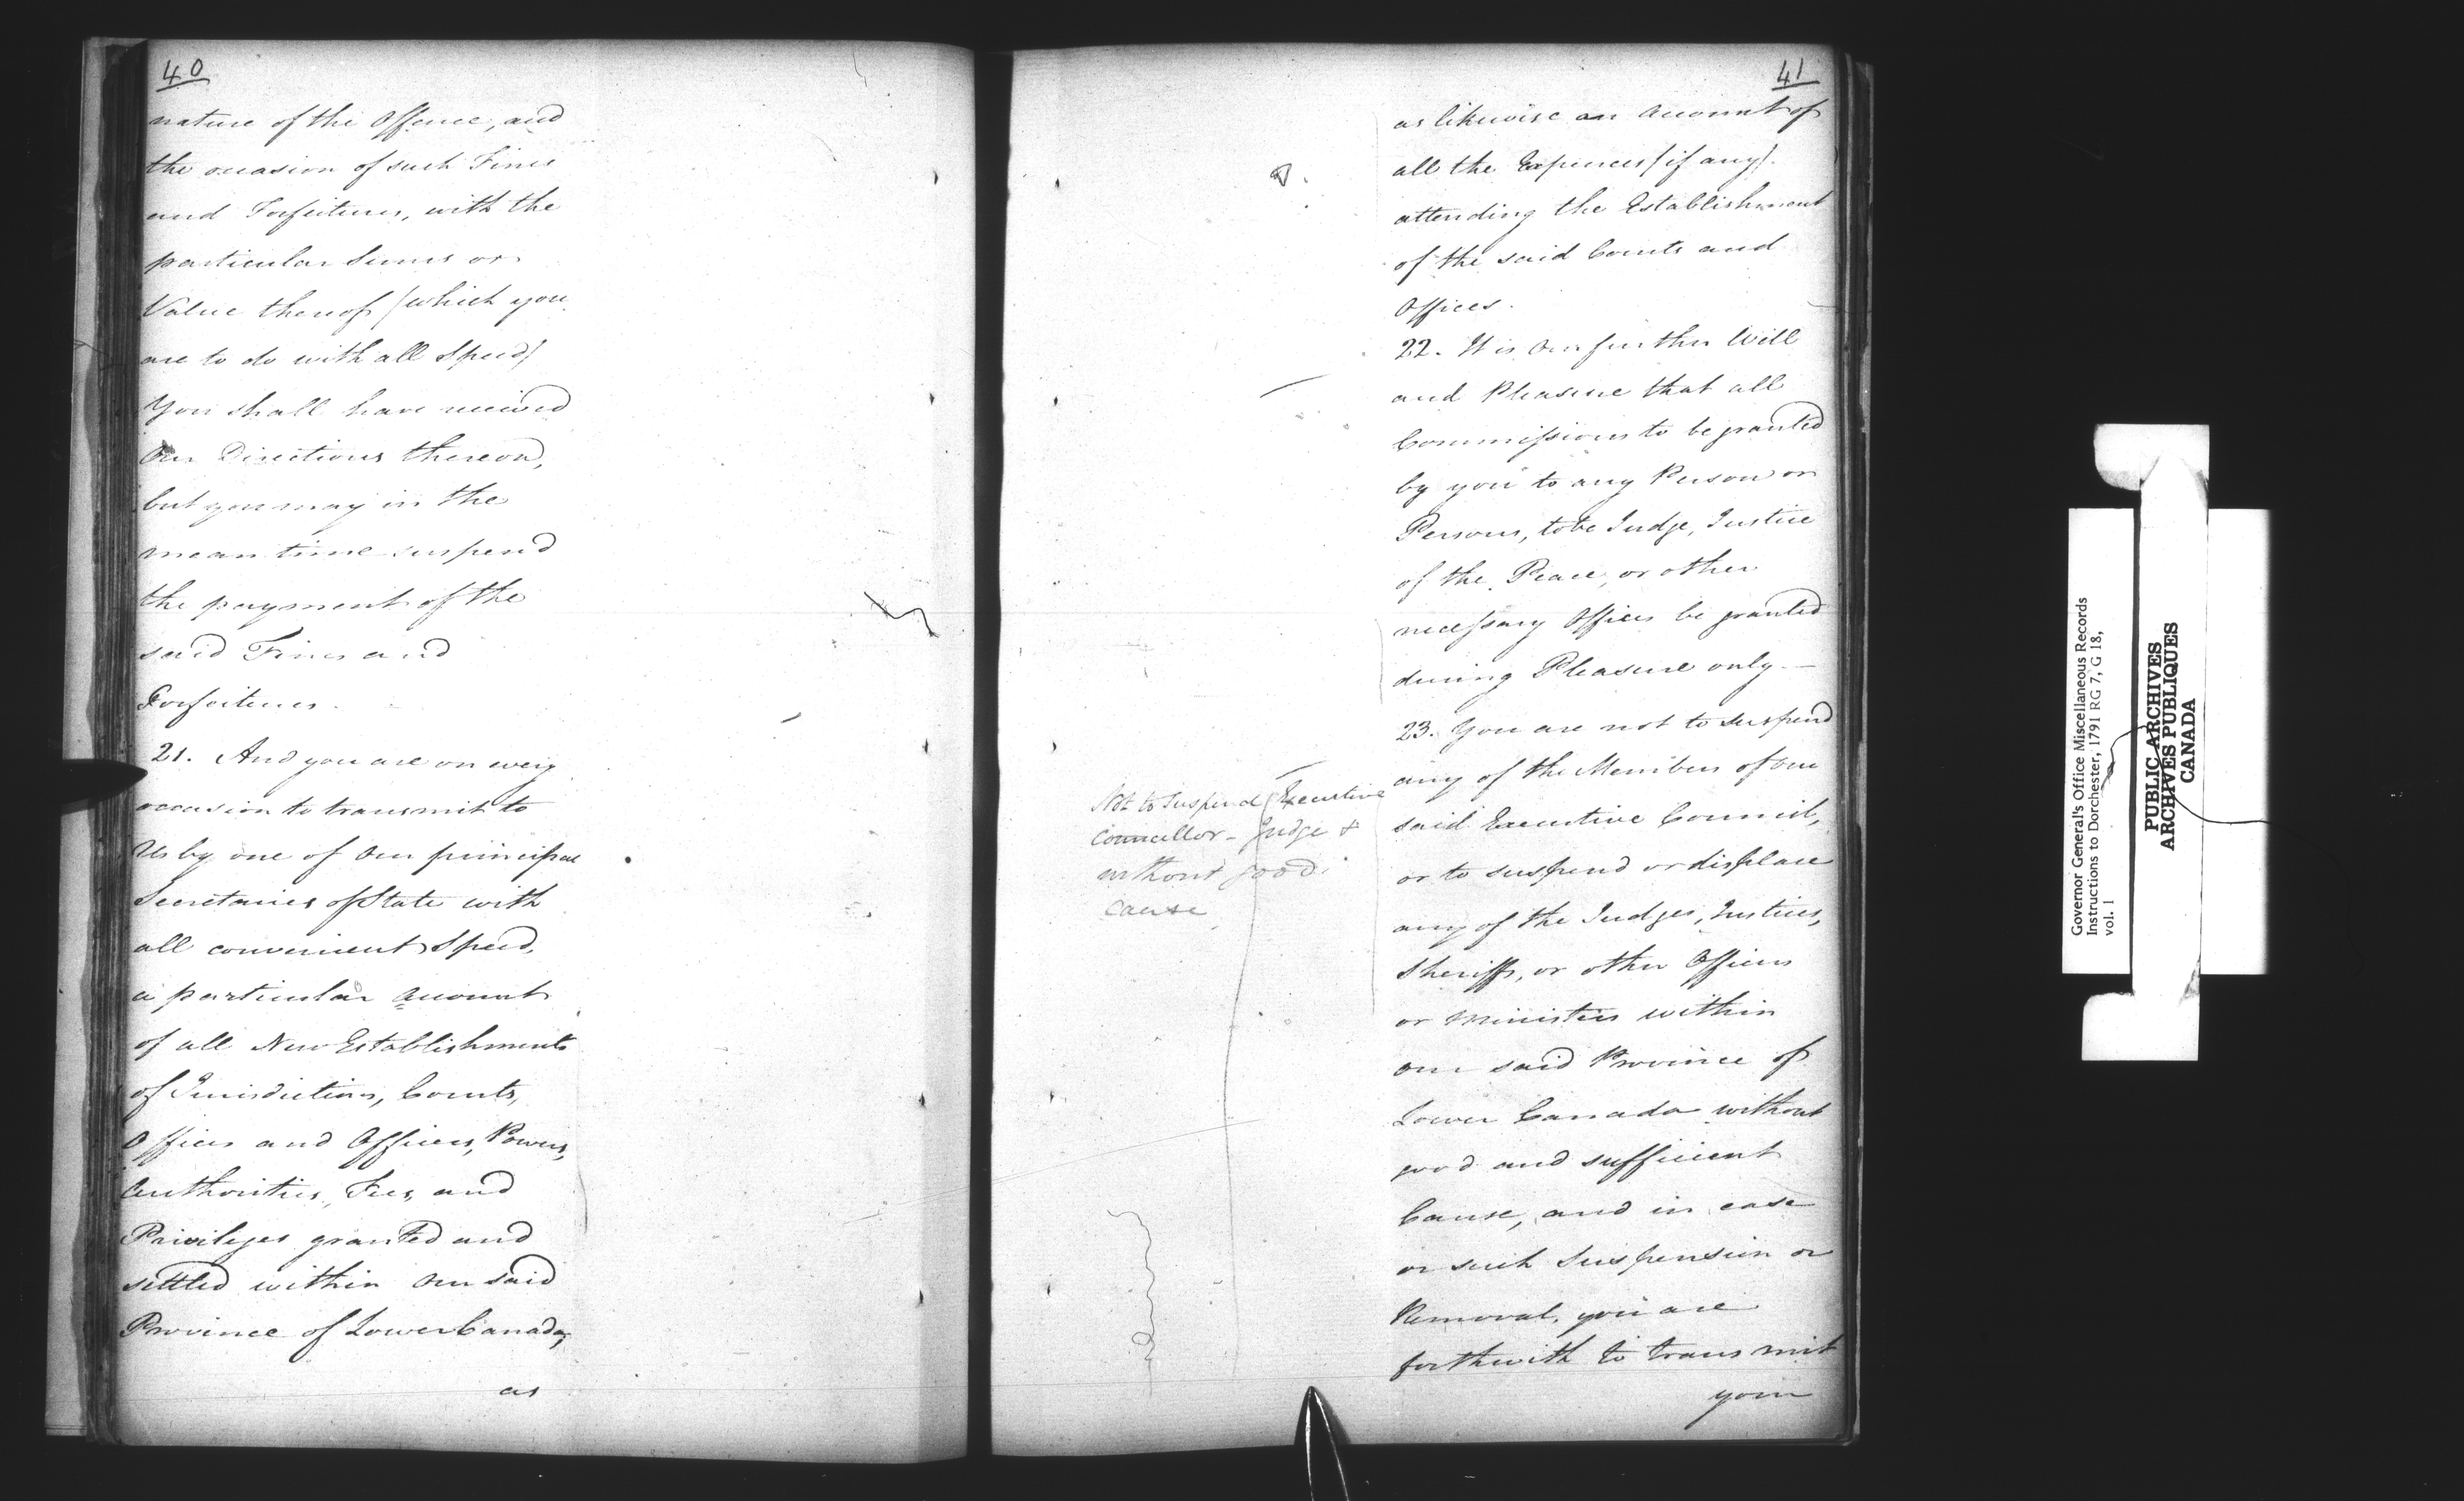 40
nature of the Offence, and
the occasion of such Fines
and Forfeitures, with the
particular Sums or
Value thereof (which you
are to do with all Speed)
You shall have received
Our Directions thereon,
but you may in the
mean time suspend
the payment of the
said Fines and
Forfeitures.
21. And you are on every
occasion to transmit to
Us by one of Our principal
Secretaries of State with
all convenient Speed,
a particular account
of all New Establishments
of Jurisdictions, Courts,
Offices and Officers, Powers,
Authorities, Fees, and
Privileges granted and
settled within Our said
Province of Lower Canada,
as
41
as likewise an account of
all the Expences (if any)
attending the Establishment
of the said Courts and
Offices.
22. It is Our further Will
and Pleasure that all
Commissions to be granted
by you to any Person or
Persons, to be Judge, Justice
of the Peace, or other
necessary Officer be granted
during Pleasure only. —
23. You are not to suspend
any of the Members of Our
said Executive Council,
or to suspend or displace
any of the Judges, Justices,
Sheriffs, or other Officers
or Ministers within
our said Province of
Lower Canada without
good and sufficient
Cause, and in case
or such Suspension or
Removal, you are
forthwith to transmit
your
Not to Suspend Executive
Councellor - Judge &
without good
cause
Governor General's Office Miscellaneous Records
Instructions to Dorchester, 1791 RG 7, G 18,
vol. 1
PUBLIC ARCHIVES
ARCHIVES PUBLIQUES
CANADA